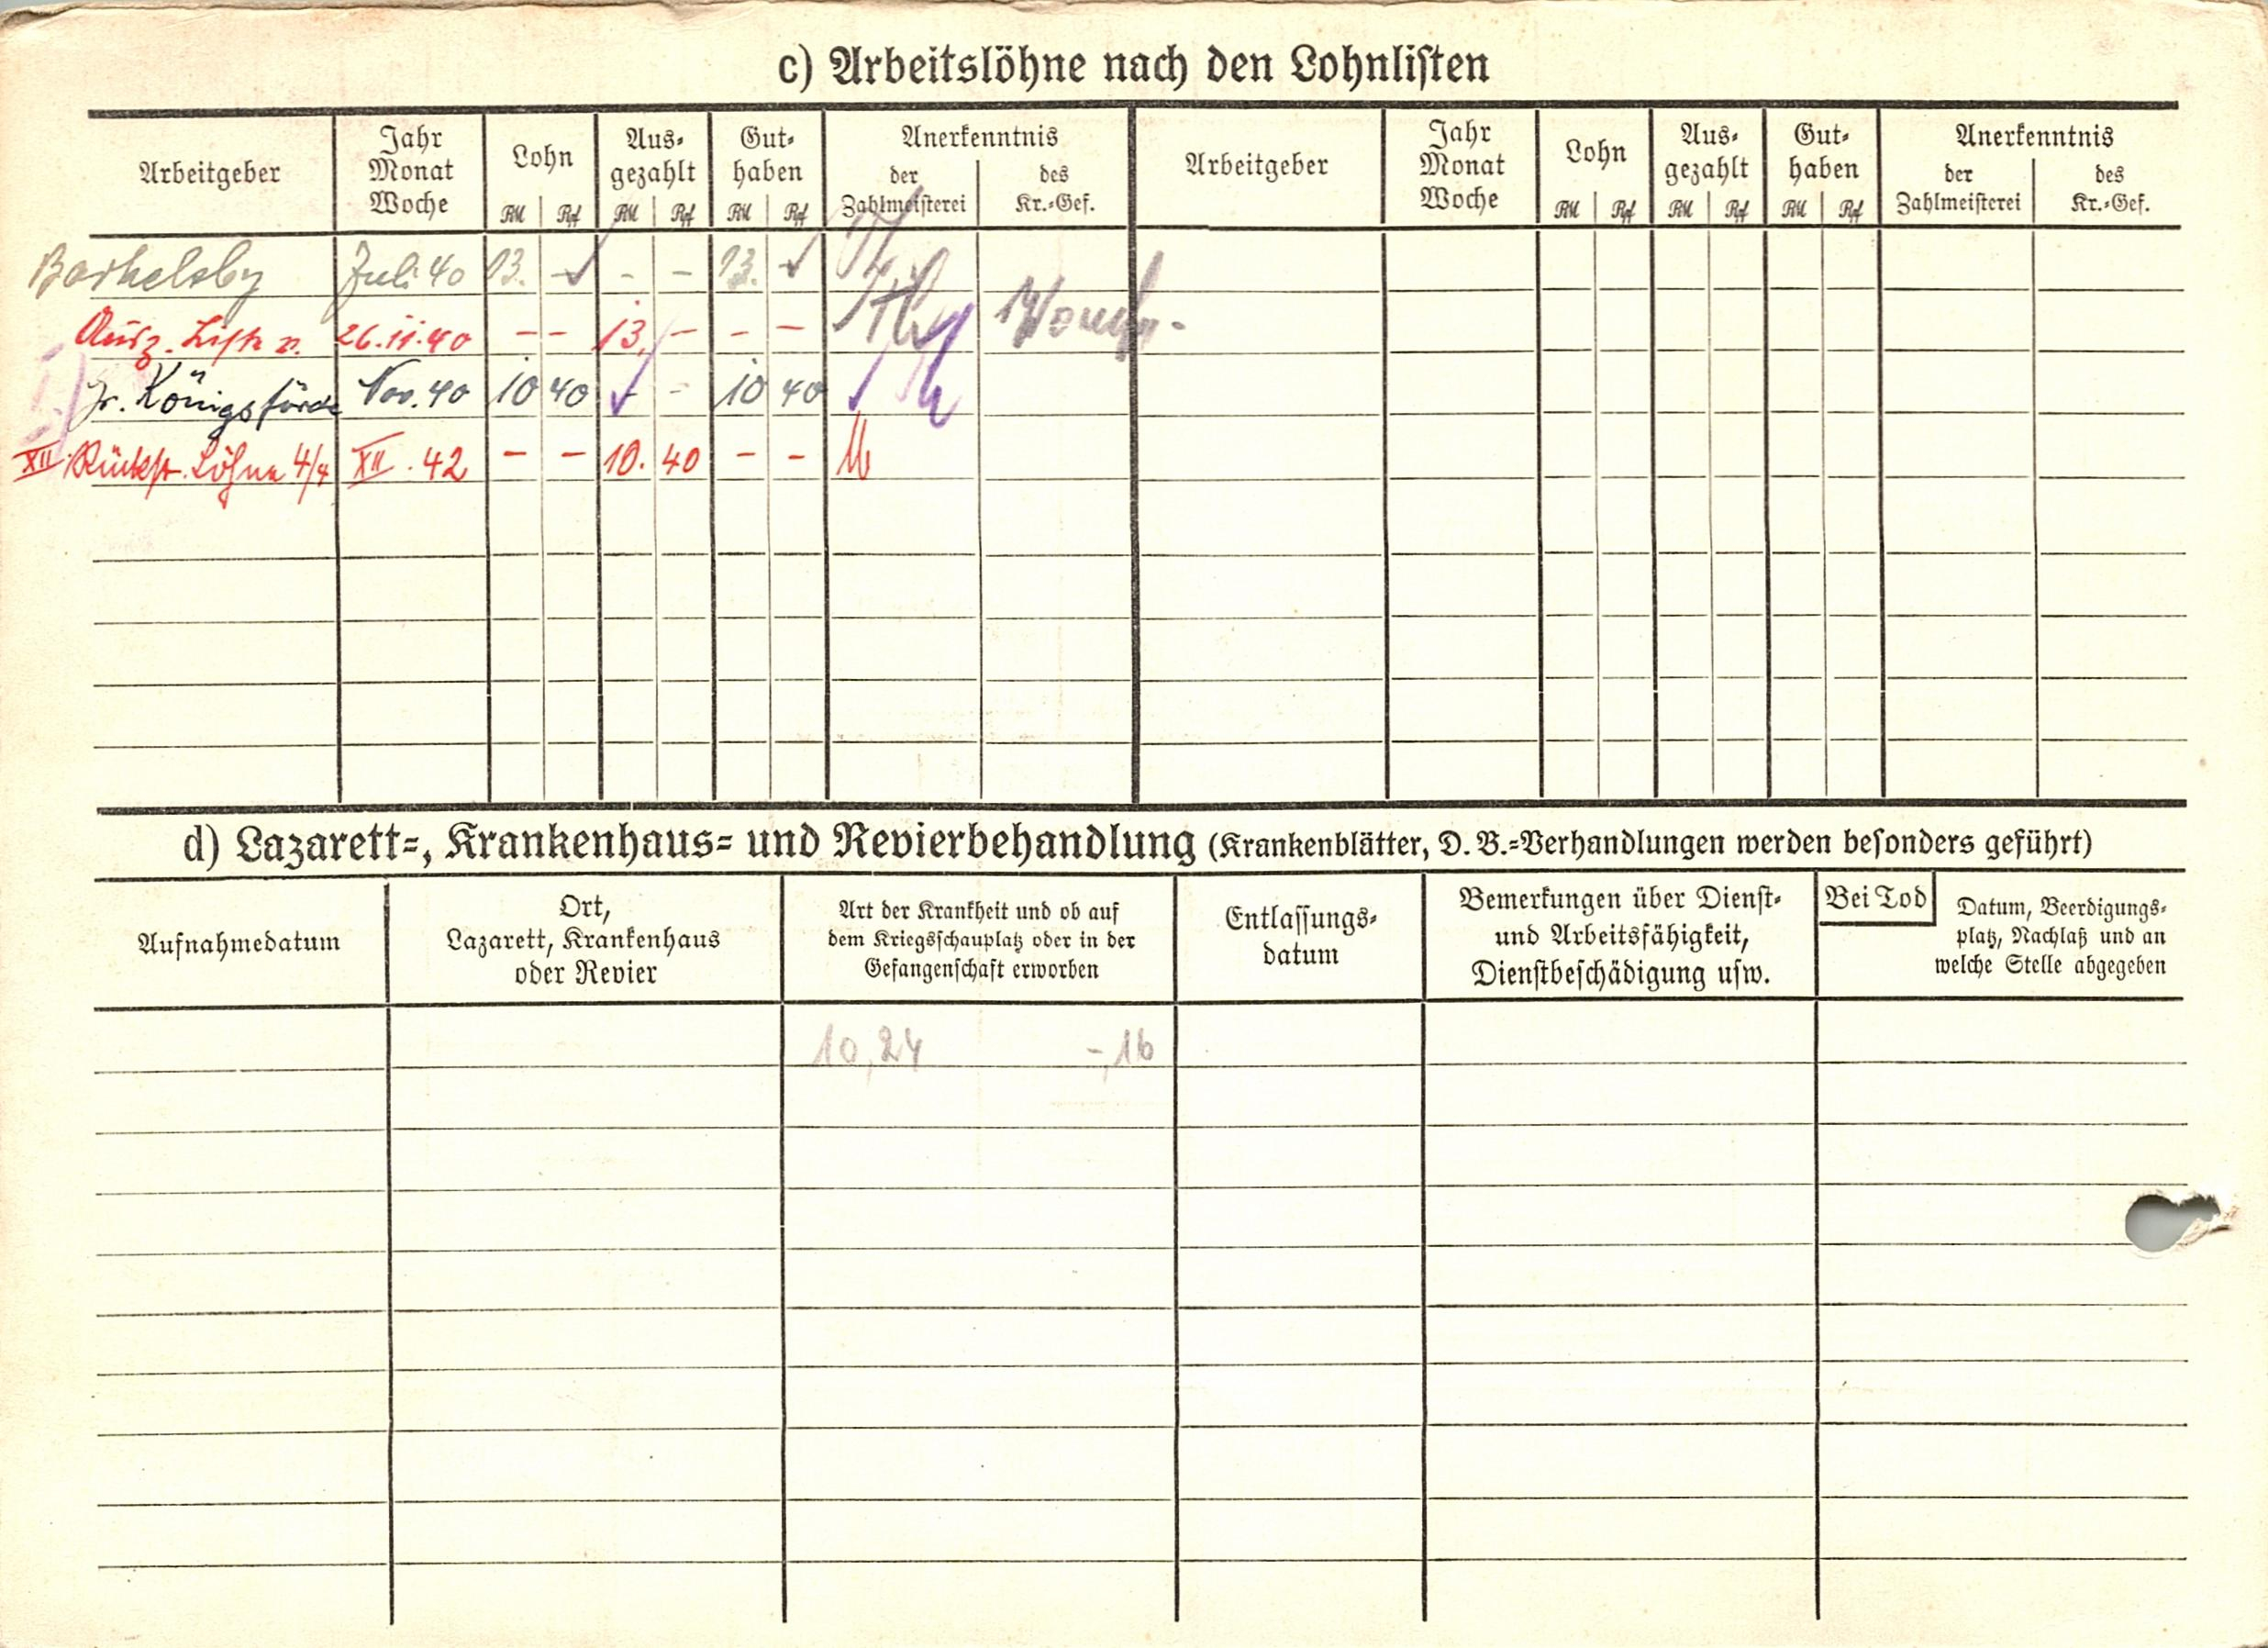 c) Arbeitslöhne nach den Lohnlisten
Arbeitgeber
Jahr
Monat
Woche
Lohn
RM Rpf
Aus-
gezahlt
RM Rpf
Gut-
haben
RM Rpf
Anerkenntnis
der
Zahlmeisterei
des
Kr.-Gef.
Arbeitgeber
Jahr
Monat
Woche
Lohn
RM Rpf
Aus-
gezahlt
RM Rpf
Gut-
haben
RM Rpf
Anerkenntnis
der
Zahlmeisterei
des
Kr.-Gef.
Barkelsby Juli 40 13. - - - 13. -
Ausz. Liste v. 26.11.40 - - 13. - - -
Königsförde Nov. 40 10 40 - - 10 40
XII Rückst. Löhne 4/4 XII. 42 - - 10. 40 - -
d) Lazarett-, Krankenhaus- und Revierbehandlung (Krankenblätter, D. B.-Verhandlungen werden besonders geführt)
Aufnahmedatum
Ort,
Lazarett, Krankenhaus
oder Revier
Art der Krankheit und ob auf
dem Kriegsschauplatz oder in der
Gefangenschaft erworben
Entlassungs-
datum
Bemerkungen über Dienst-
und Arbeitsfähigkeit,
Dienstbeschädigung usw.
Bei Tod
Datum, Beerdigungs-
platz, Nachlaß und an
welche Stelle abgegeben
10,24 -,16